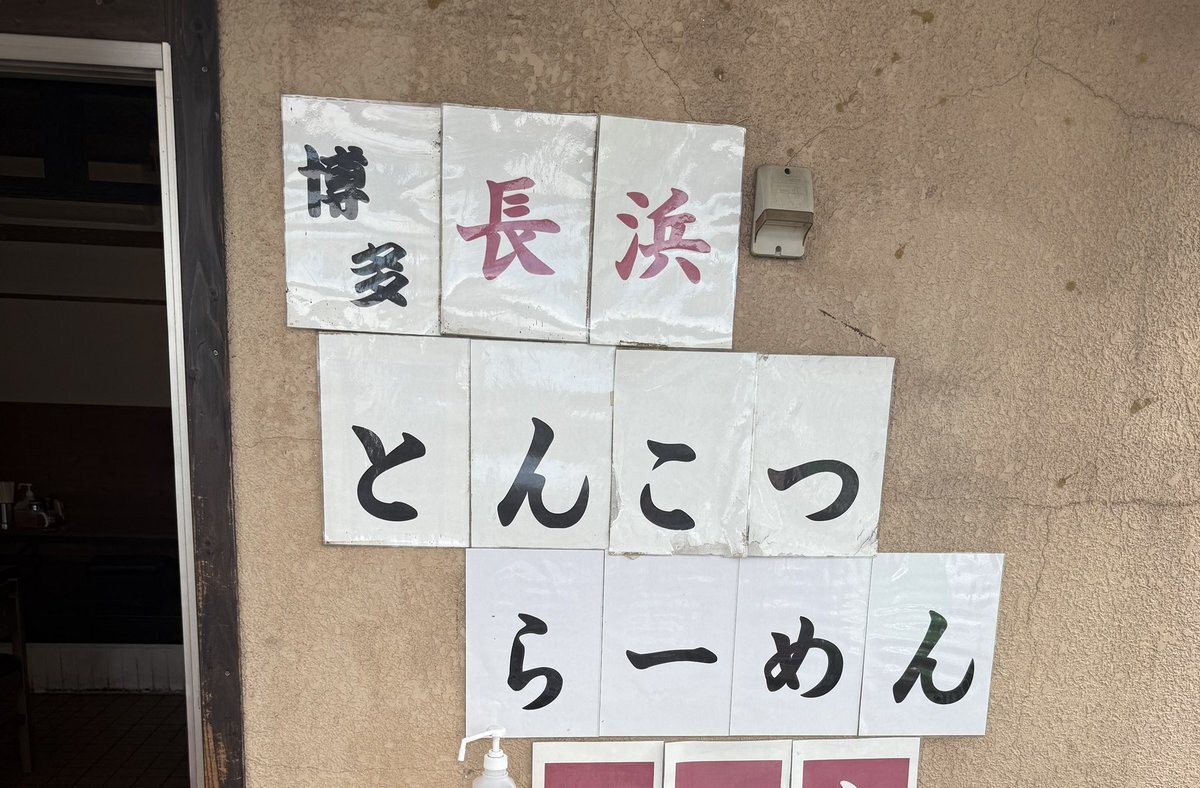 博多 長浜
とんこつ
らーめん